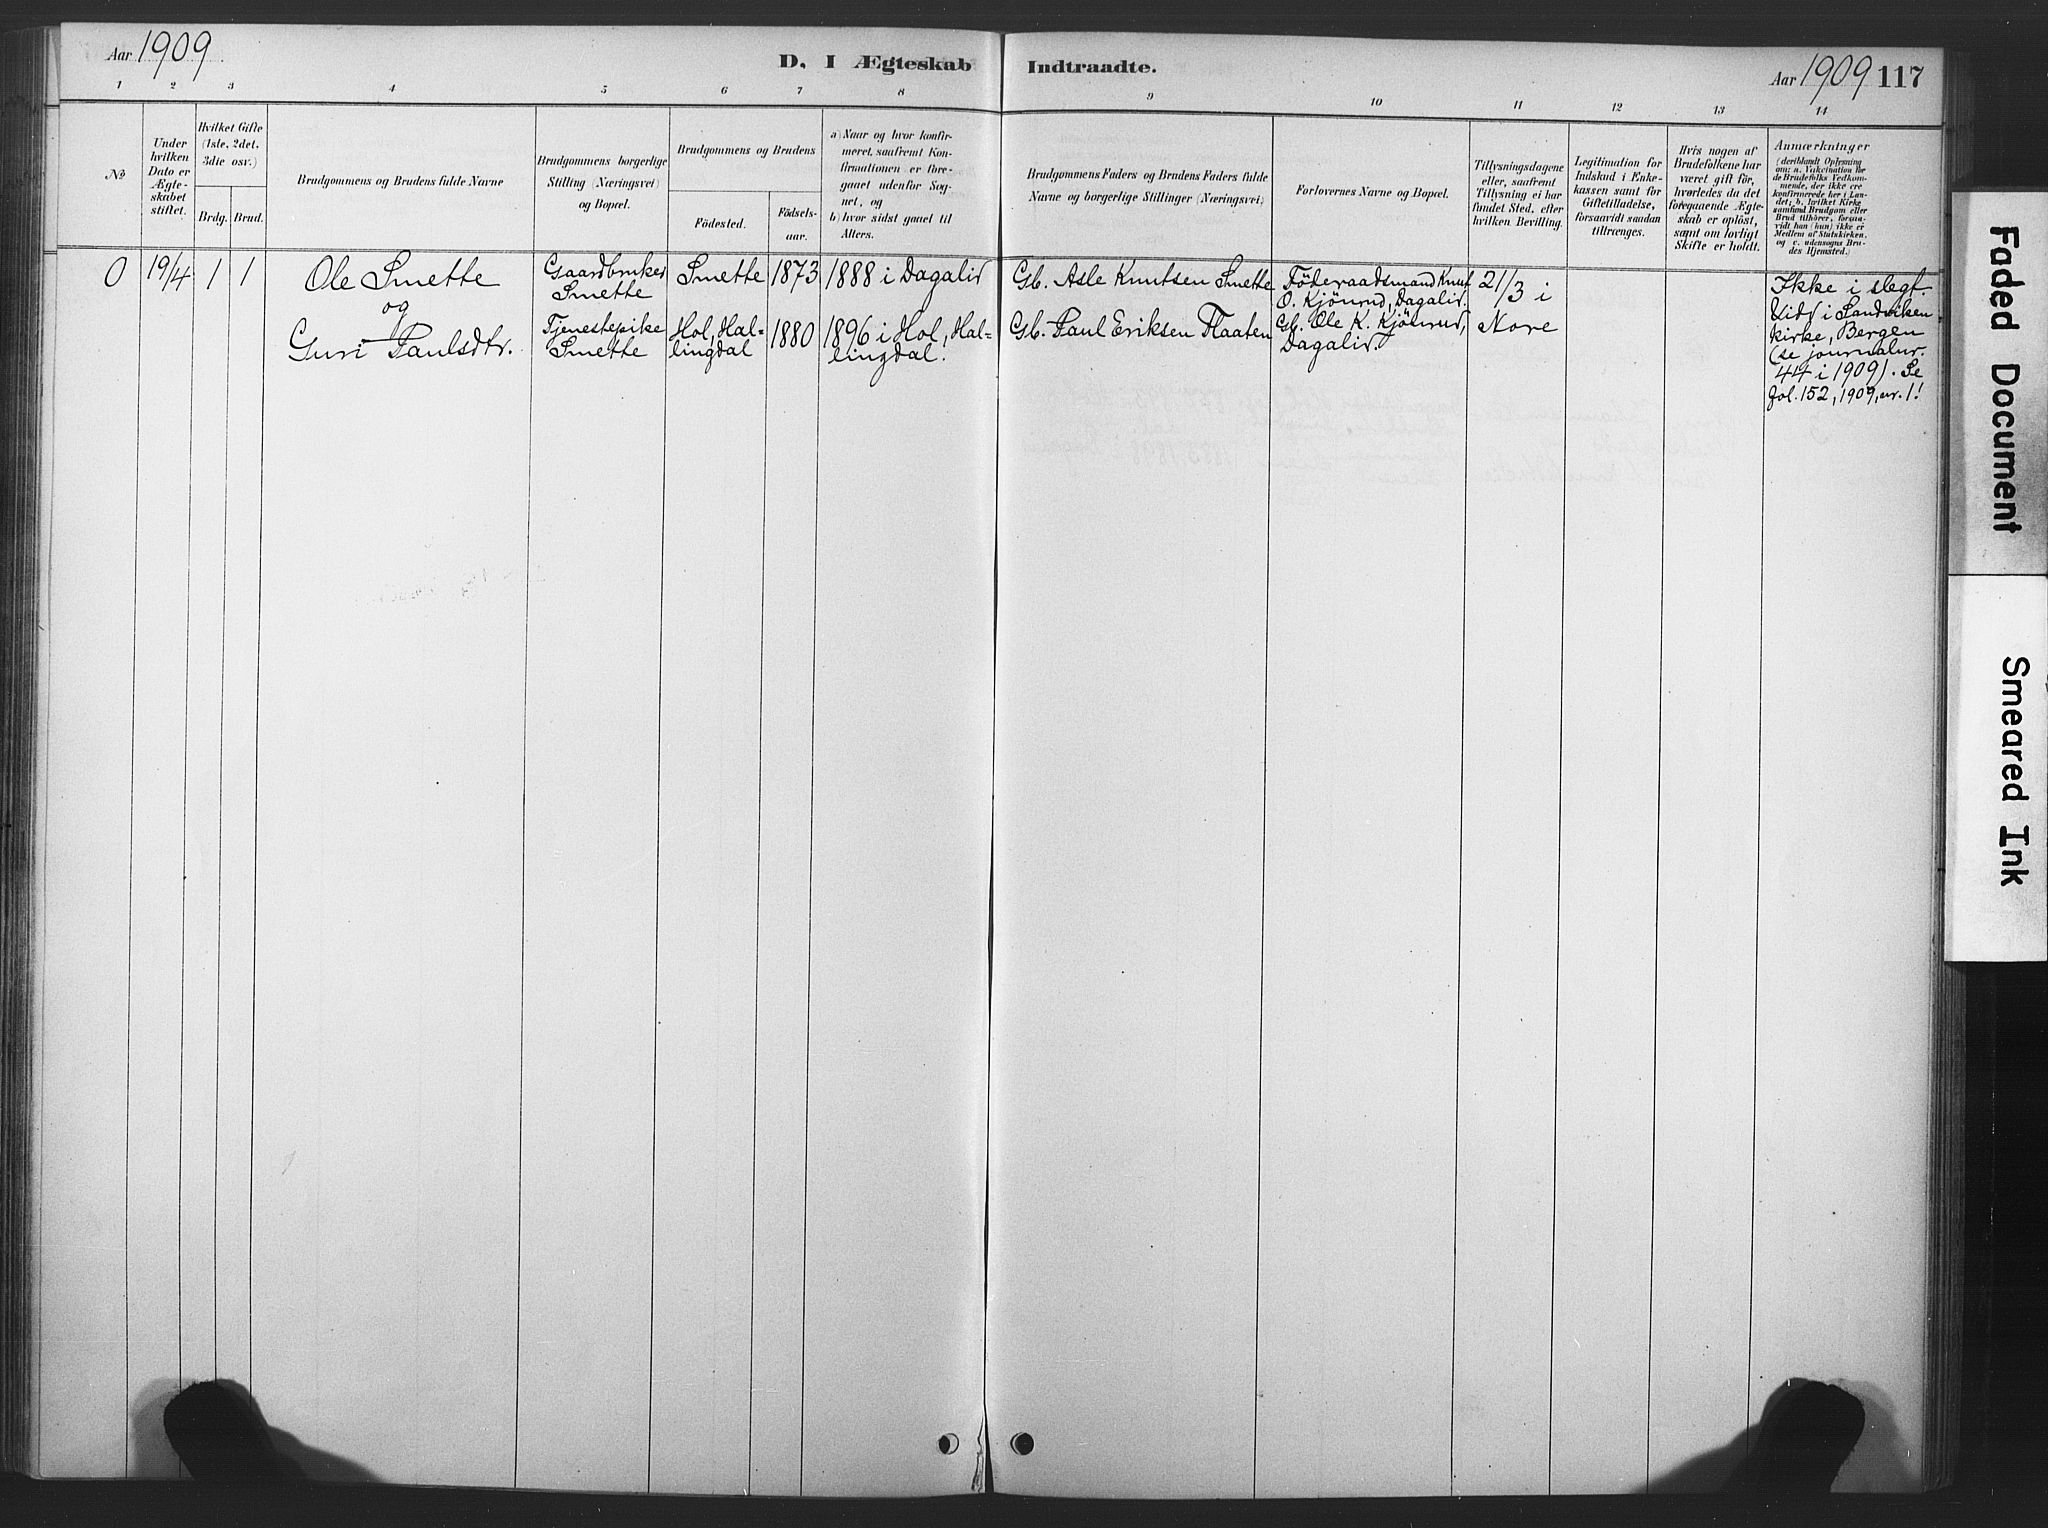 Aar 1909
D. I Ægteskab Indtraadte.
Aar 1909 117
1 2 3 4 5 6 7 8 9 10 11 12 13 14
No
Under
hvilken
Dato er
Ægte-
skabet
stiftet.
Hvilket Gifte
(1ste, 2det,
3die osv.)
Brdg. Brud.
Brudgommens og Brudens fulde Navne
Brudgommens borgerlige
Stilling (Næringsvei)
og Bopæl.
Brudgommens og Brudens
Födested.
Födsels-
aar.
a) Naar og hvor konfir-
meret, saafremt Kon-
firmationen er fore-
gaaet udenfor Sog-
net, og
b) hvor sidst gaaet til
Alters.
Brudgommens Faders og Brudens Faders fulde
Navne og borgerlige Stillinger (Næringsvei)
Forlovernes Navne og Bopæl.
Tillysningsdagene
eller, saafremt
Tillysning ei har
fundet Sted, efter
hvilken Bevilling.
Legitimation for
Indskud i Enke-
kassen samt for
Giftetilladelse,
forsaavidt saadan
tiltrænges.
Hvis nogen af
Brudefolkene har
været gift før,
hvorledes da det
foregaaende Ægte-
skab er oplöst,
samt om lovligt
Skifte er holdt.
Anmærkninger
(deriblandt Oplysning
om: a. Vakcination for
de Brudefolks Vedkom-
mende, der ikke ere
konfirmerede her i Lan-
det; b. hvilket Kirke-
samfund Brudgom eller
Brud tilhører, forsaa-
vidt han (hun) ikke er
Medlem af Statskirken,
og c. udensogns Bru-
des Hjemsted.)
0 19/4 1 1
Ole Smette
og
Guri Paulsdtr.
Gaardbruker
Smette
Tjenestepike
Smette
Smette
Hol, Hal-
lingdal
1873
1880
1888 i Dagalid
1896 i Hol, Hal-
lingdal.
Gb. Asle Knutsen Smette
Gb. Paul Eriksen Flaaten
Föderaadsmand Knut
O. Kjönrud, Dagalid.
Gb. Ole K. Kjönrud,
Dagalid.
21/3 i
Nore
Ikke i slegt.
Vidd i Sandviken
kirke, Bergen
(se journalnr.
44 i 1909). Se
fol. 152, 1909, nr. 1!
Faded Document
Smeared Ink